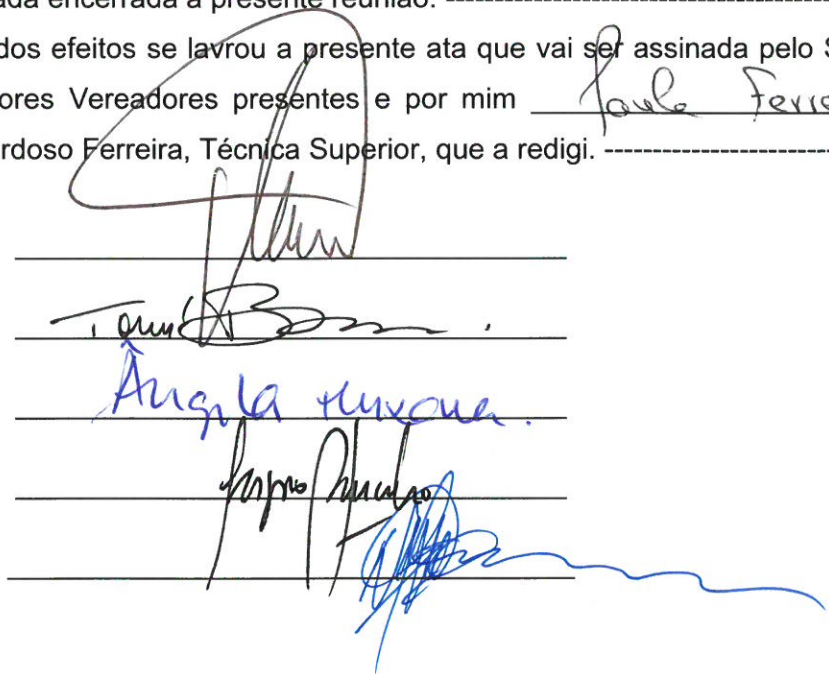 ada encerrada a presente reunião. ----------------------------------------
dos efeitos se lavrou a presente ata que vai ser assinada pelo S
ores Vereadores presentes e por mim Paula Ferre
rdoso Ferreira, Técnica Superior, que a redigi. ------------------------
Ângela